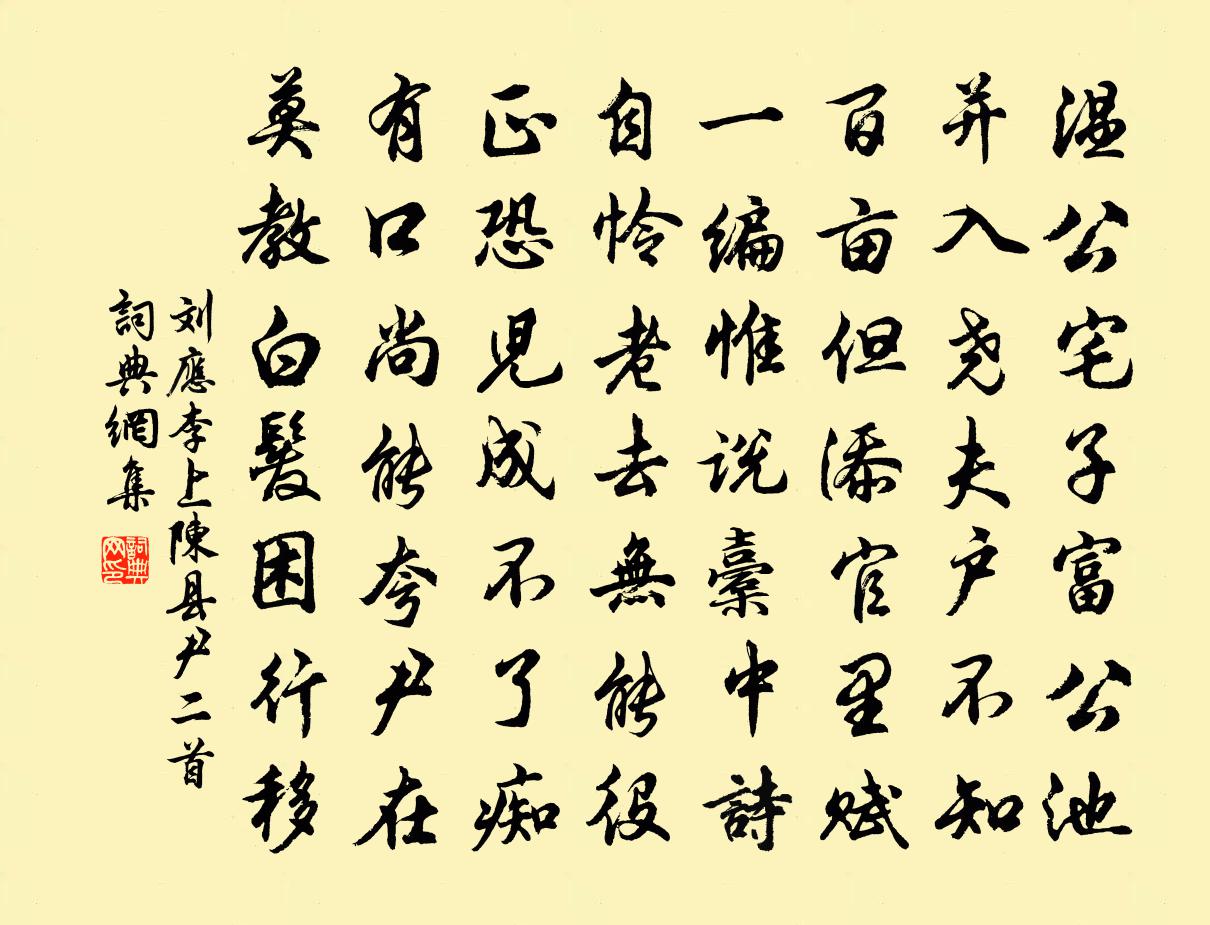 温公宅子富公池
并入尧夫户不知
百亩但添官里赋
一编惟说橐中詩
自怜老去無能役
正恐児成不了痴
有口尚能夸尹在
莫教白髮困行移
刘應李上陳县尹二首
詞典網集
詞典網印